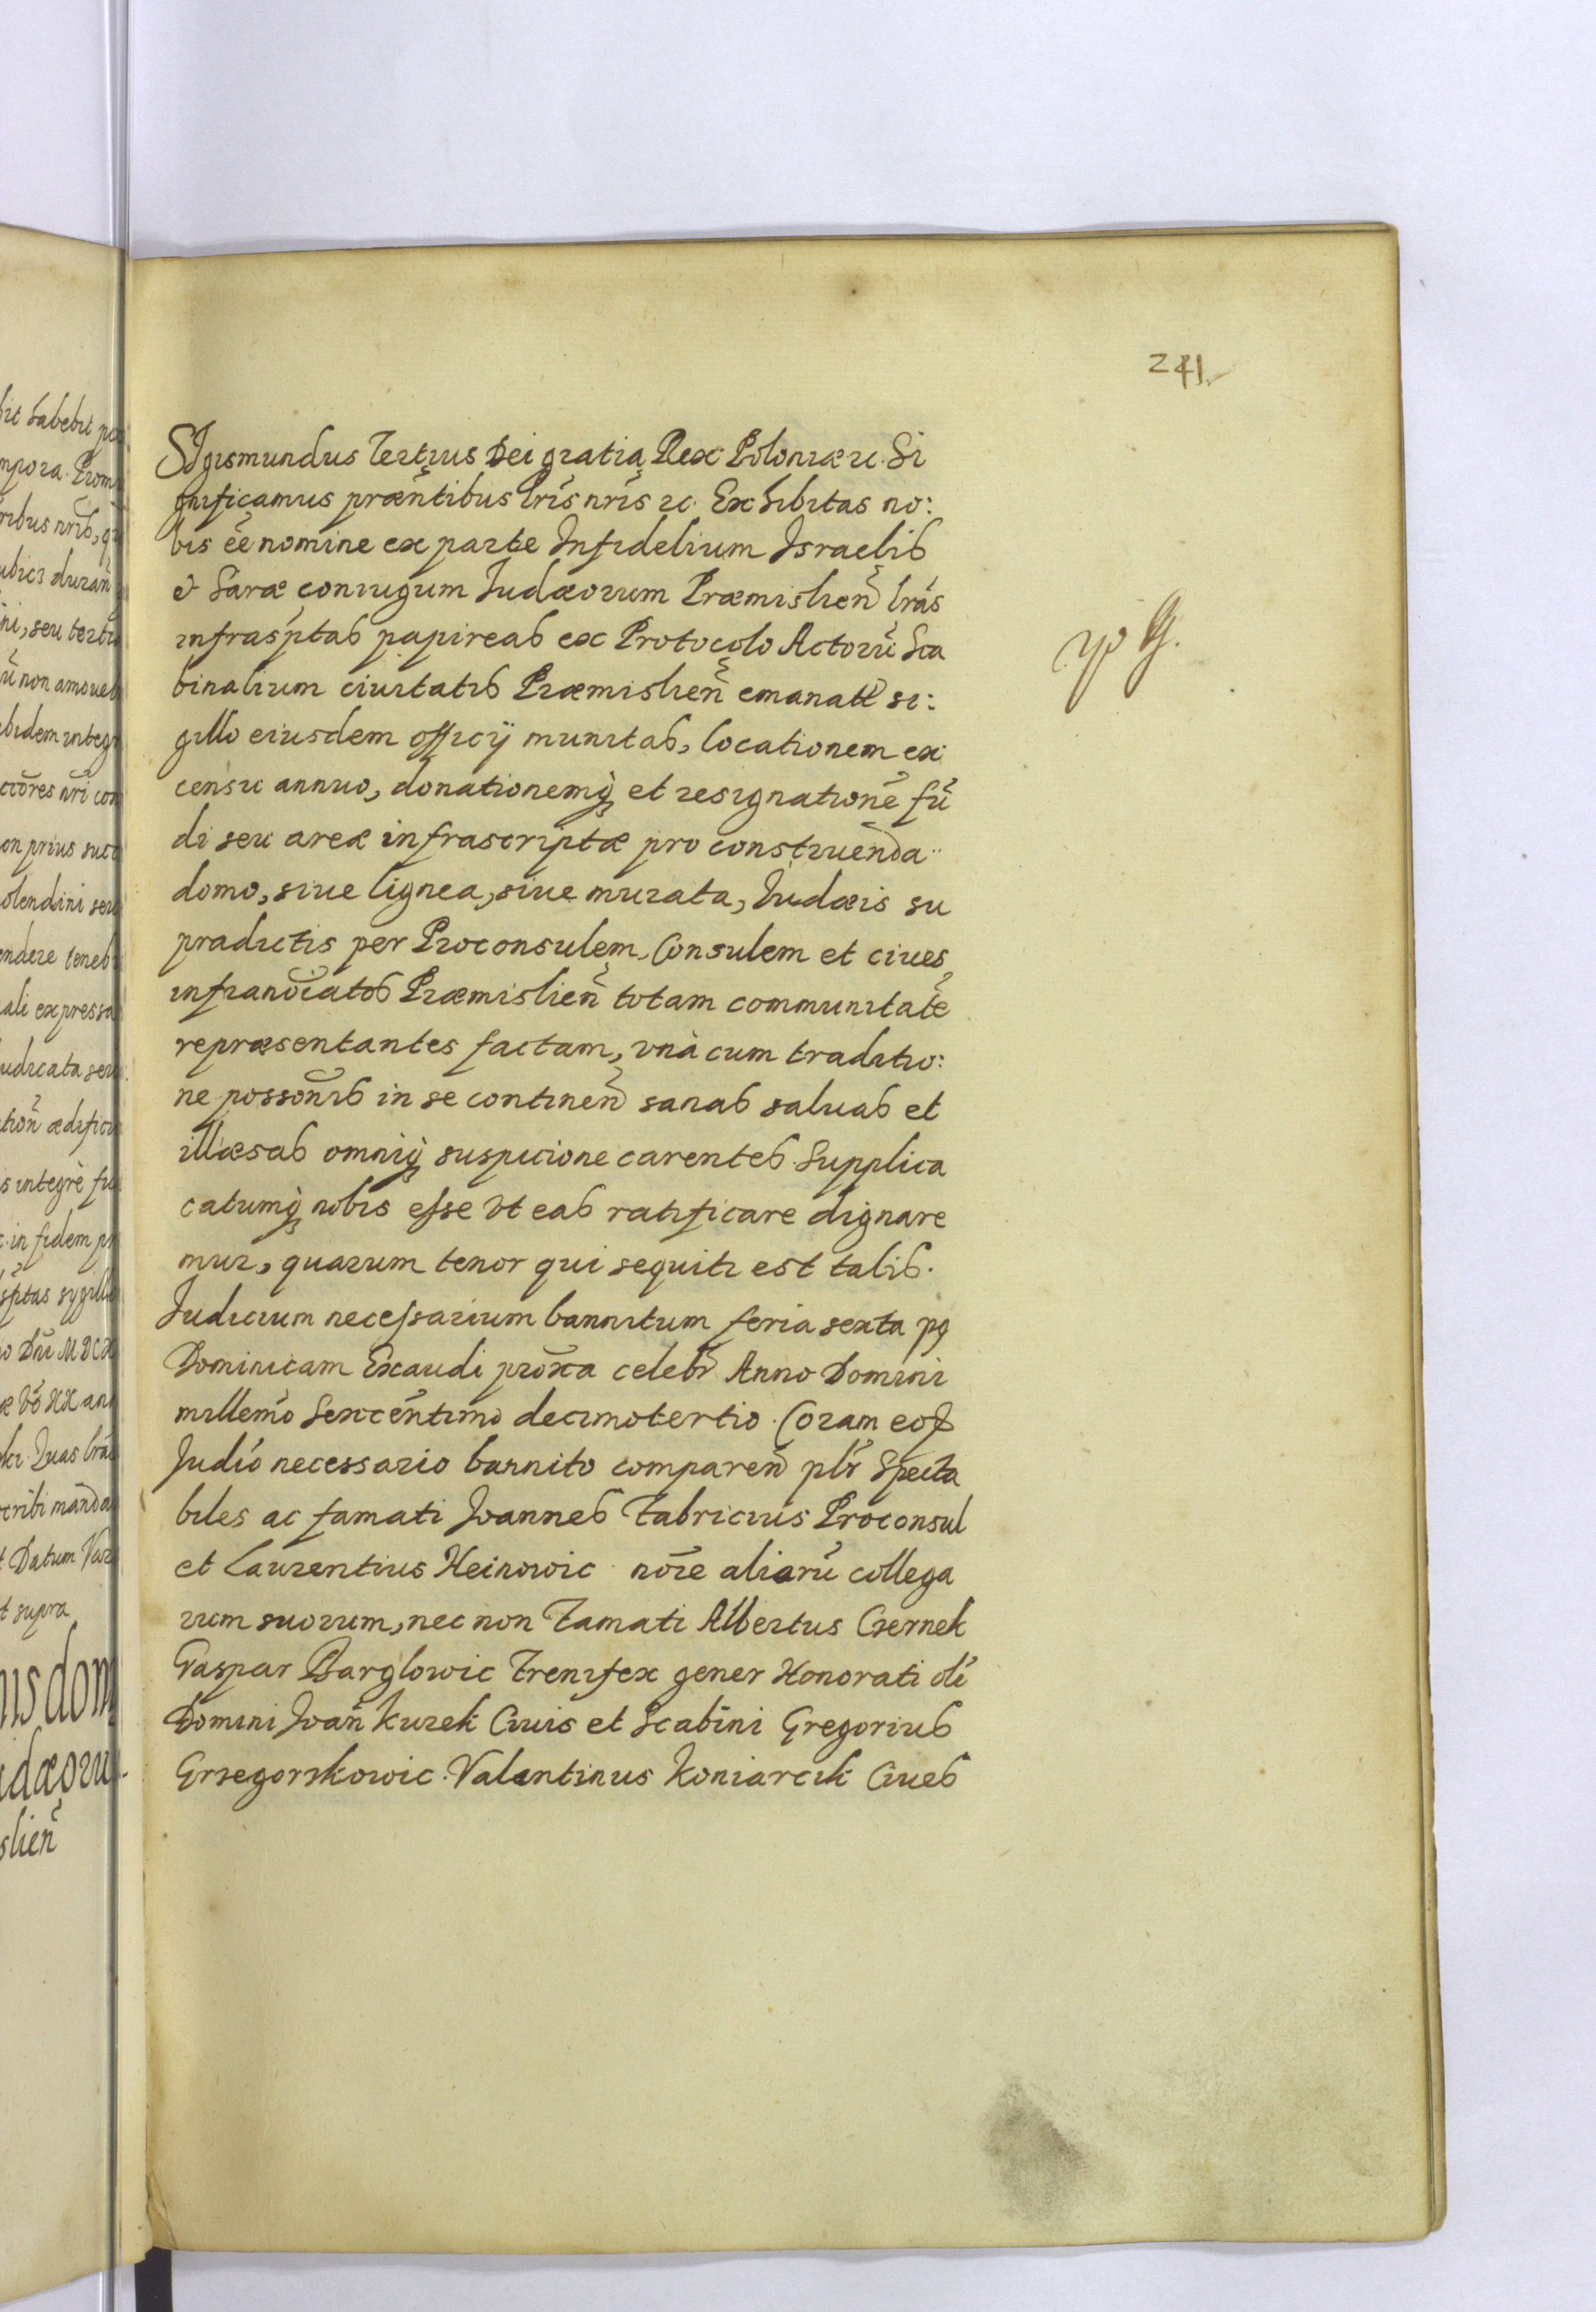 241.
SIgismundus Tertius Dei gratia Rex Poloniæ zc. Si
gnificamus præntibus lris nris zc. Exhibitas no:
bis ee nomine ex parte Infidelium Israelis
et Saræ coniugum Iudæorum Præmislien lras
infrasptas papireas ex Protocolo Actoru Sca
binalium ciuitatis Præmislien emanatt si:
gillo eiusdem officÿ munitas, locationem ex
censu annuo, donationemq et resignatione fu
di seu areæ infrascriptæ pro construenda
domo, siue lignea, siue murata, Iudæis su
pradictis per Proconsulem, Consulem et ciues
infranoiatos Præmislien totam communitate
repræsentantes factam, vnà cum traditio:
ne possonis in se continen sanas saluas et
illæsas omniq suspicione carentes. Supplica
catumq nobis esse vt eas ratificare dignare
mur, quarum tenor qui sequitr est talis.
Iudicium necessarium bannitum feria sexta pq
Dominicam Exaudi proxa celebr Anno Domini
millemo Sexcentimo decimotertio. Coram eoz
Iudio necessario bannito comparen plr Specta
biles ac famati Joannes Fabricius Proconsul
et Laurentius Heinowic noie aliaru collega
rum suorum, nec non Famati Albertus Czernek
Gaspar Barglowic Frenifex gener Honorati oli
Domini Joan Kurek Ciuis et Scabini Gregorius
Grzegorzkowic. Valentinus Koniarcik Ciues
bit habebit
mpora. Prom
ribus nris,
ubici duran
ni, seu
u non
bidem integr
ctores nri con
on prius
olendini seu
endere teneb
ali expressa
udicata seu
tion ædific
s integrè
in fidem
sptas sygill
o Dni MDC
Quas lras
cribi manda
Datum
t supra
dæoru
slien